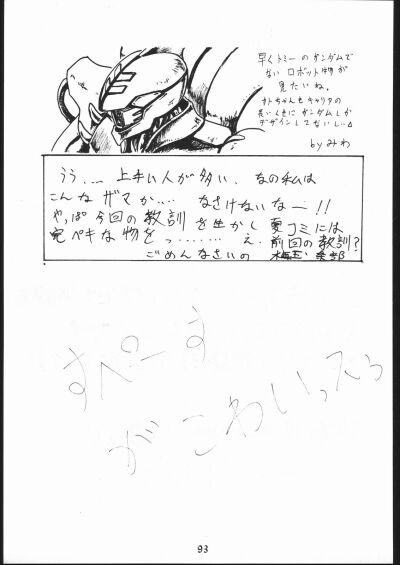 早くトミーのガンダムで
ない ロボット物が
見たいね。
オトちゃんもキャリアの
長いくせに ガンダムしか
デザインしてないし…
by みわ
うう、… 上手い人が多い、なのに私は
こんなザマか…. なさけないなー!!
やっぱ今回の教訓を生かし夏コミには
完ペキな物をっ……… え、前回の教訓?
ごめんなさいの
すぺーす
がこわいってう
93